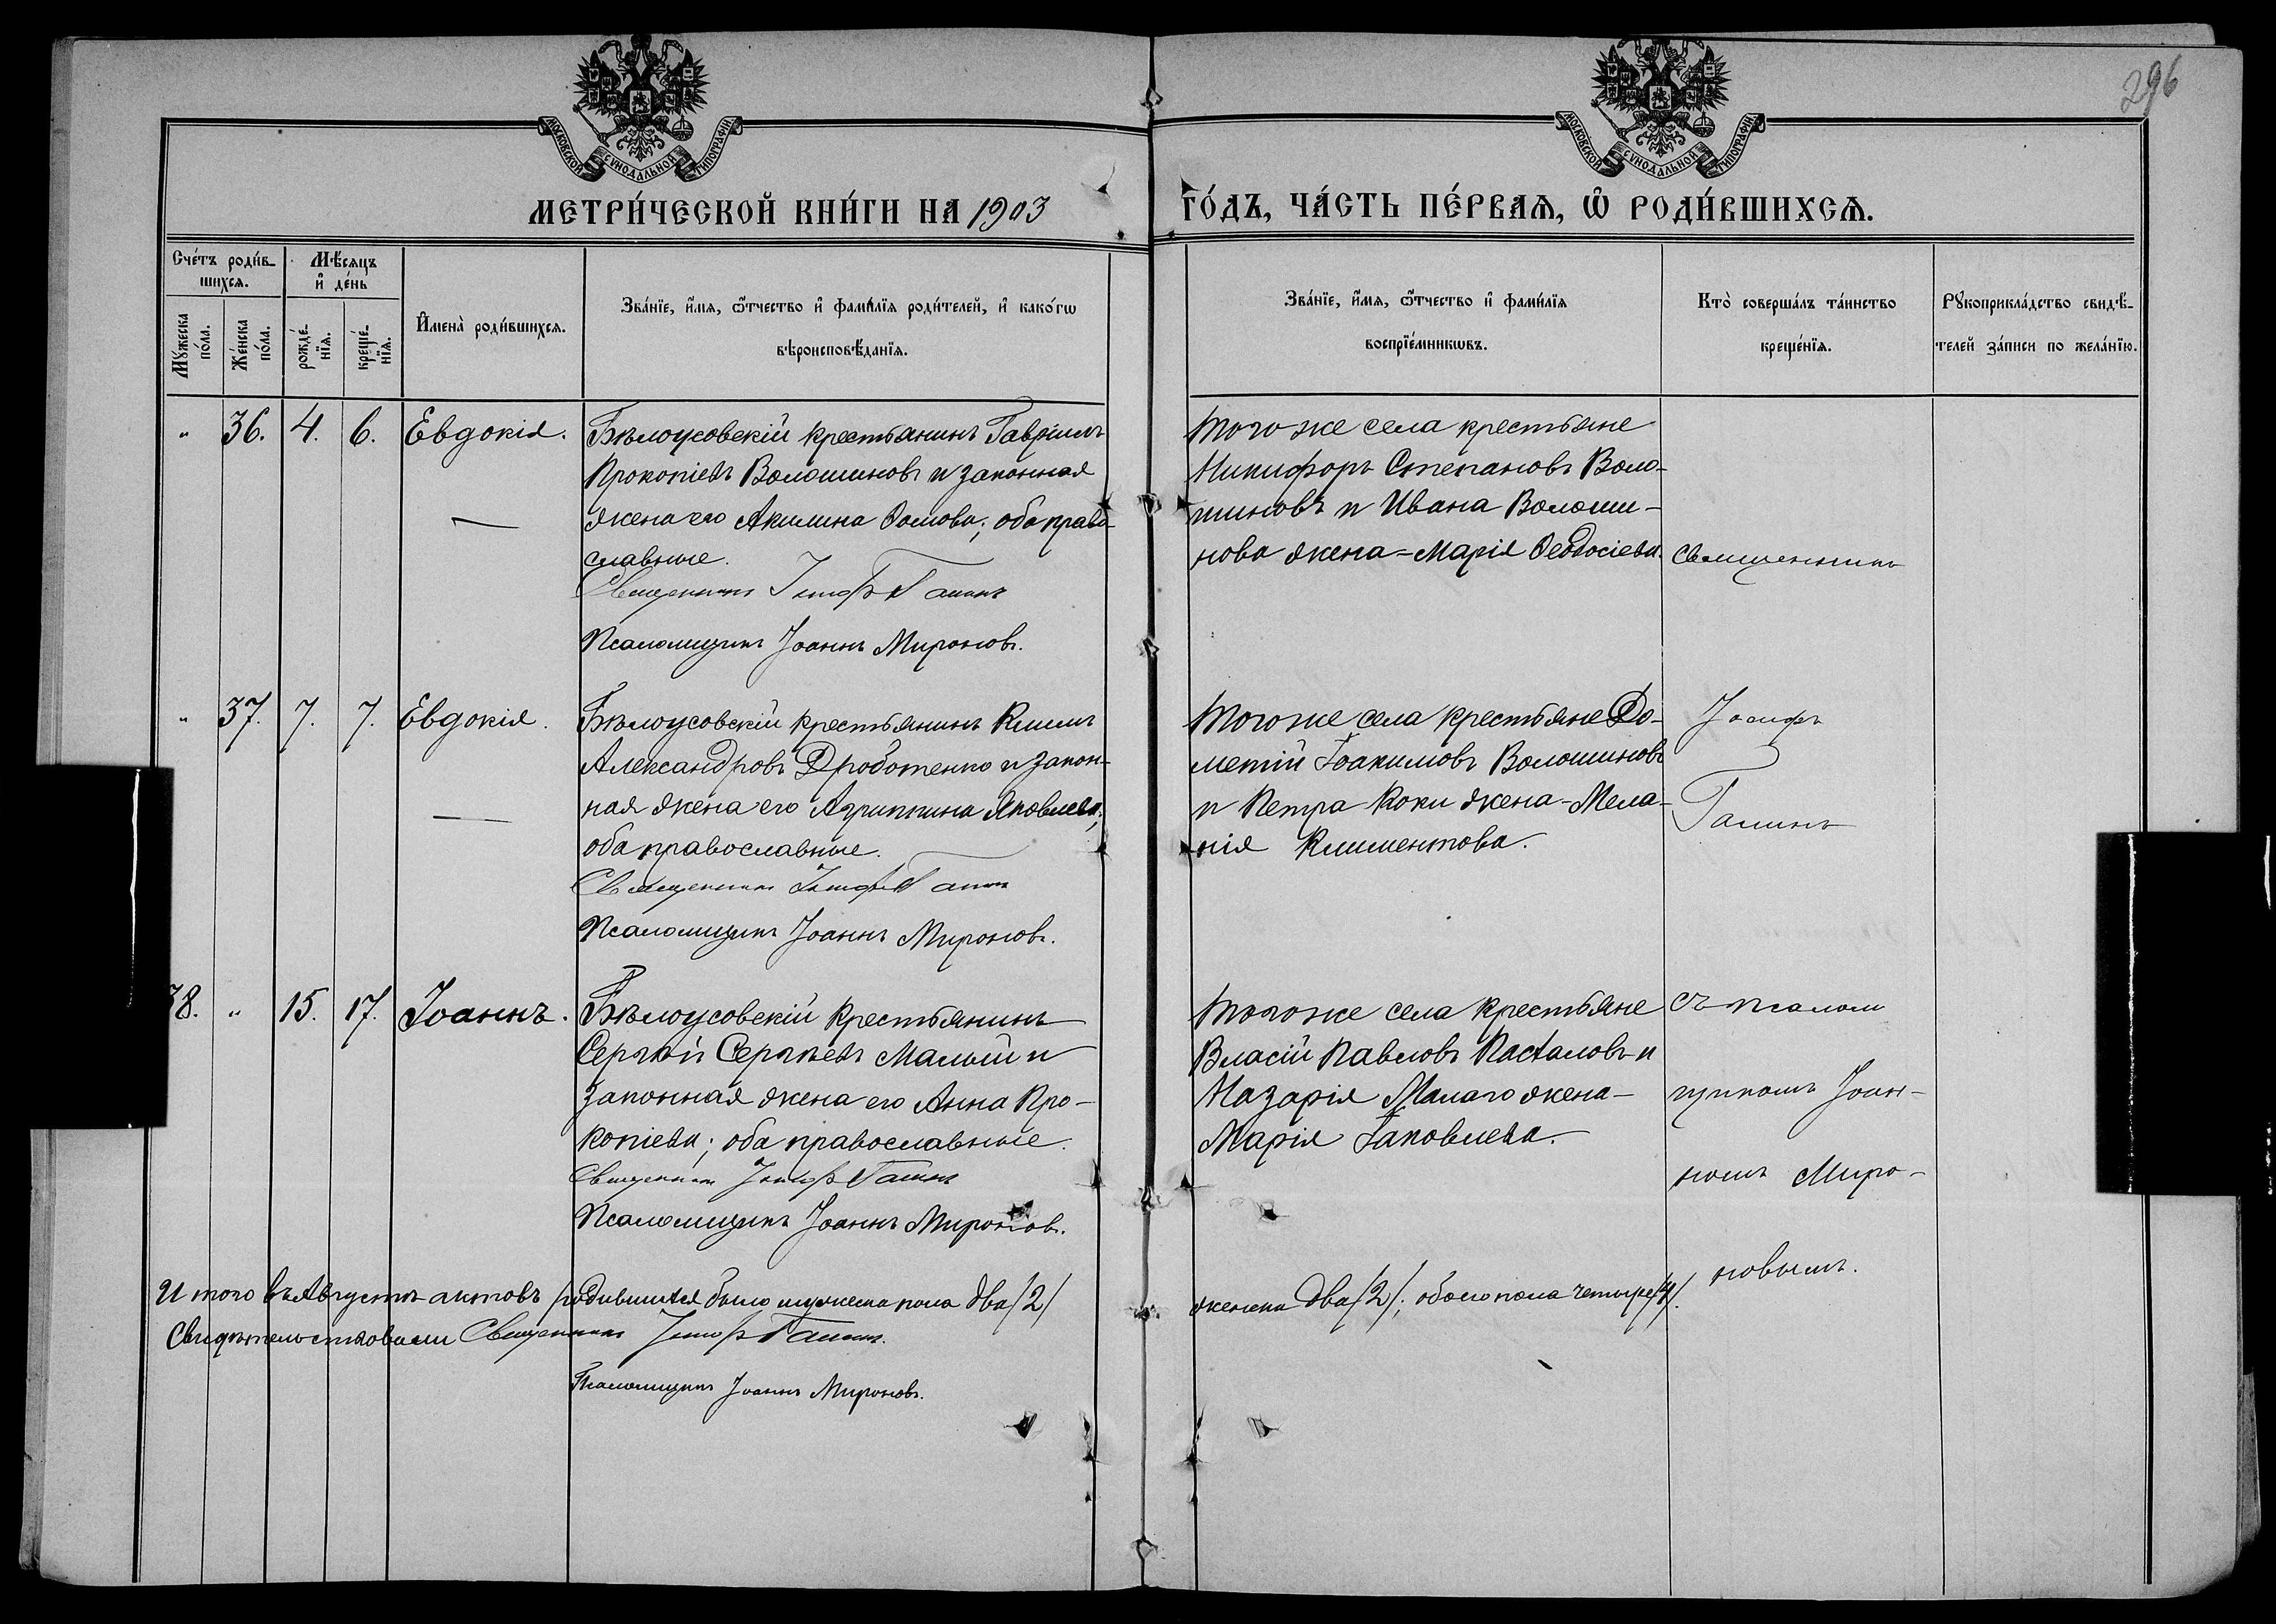 296
МОСКОВСКОЙ СУНОДАЛЬНОЙ ТИПОГРАФІИ
МОСКОВСКОЙ СУНОДАЛЬНОЙ ТИПОГРАФІИ
МЕТРИ́ЧЕСКОЙ КНИ́ГИ НА 1903 ГО́ДЪ, ЧА́СТЬ ПЕ́РВАѦ, Ѡ РОДИ́ВШИХСѦ.
Сче́тъ роди́в-
шихсѧ.
Мꙋ́жеска по́ла.
Же́нска по́ла.
Мѣ́сѧцъ
и҆ де́нь
рожде́-
нїѧ.
креще́-
нїѧ.
И҆мена̀ роди́вшихсѧ.
Зва́нїе, и҆́мѧ, ѻ҆́тчество и҆ фами́лїѧ роди́телей, и҆ како́гѡ
вѣроисповѣ́данїѧ.
Зва́нїе, и҆́мѧ, ѻ҆́тчество и҆ фами́лїѧ
воспрїе́мникѡвъ.
Кто̀ соверша́лъ та́инство
креще́нїѧ.
Рꙋкоприкла́дство свидѣ́-
телей за́писи по жела́нїю.
" 36. 4. 6. Евдокія.
Бѣлоусовскій крестьянинъ Гавріилъ
Прокопіевъ Волошиновъ и законная
жена его Акилина Ѳомова; оба право-
славные.
Священникъ Іосифъ Галинъ
Псаломщикъ Іоаннъ Мироновъ.
Того же села крестьяне
Никифоръ Степановъ Воло-
шиновъ и Ивана Волоши-
нова жена - Марія Ѳеодосіева.
Священникъ
" 37. 7. 7. Евдокія.
Бѣлоусовскій крестьянинъ Климъ
Александровъ Дроботенко и закон-
ная жена его Агриппина Яковлева;
оба православные.
Священникъ Іосифъ Галинъ
Псаломщикъ Іоаннъ Мироновъ.
Того же села крестьяне До-
метій Іоакимовъ Волошиновъ
и Петра Коки жена - Мела-
нія Климентова.
Іосифъ
Галинъ
38. " 15. 17. Іоаннъ.
Бѣлоусовскій крестьянинъ
Сергѣй Сергѣевъ Малый и
законная жена его Анна Про-
копіева; оба православные.
Священникъ Іосифъ Галинъ
Псаломщикъ Іоаннъ Мироновъ.
Того же села крестьяне
Власій Павловъ Пасталовъ и
Назарія Малаго жена -
Марія Іаковлева.
съ псалом
щикомъ Іоан-
номъ Миро-
новымъ.
Итого въ Августѣ актовъ родившихся было мужеска пола два /2/ женска два /2/; обоего пола четыре /4/.
Свидѣтельствовали Священникъ Іосифъ Галинъ.
Псаломщикъ Іоаннъ Мироновъ.